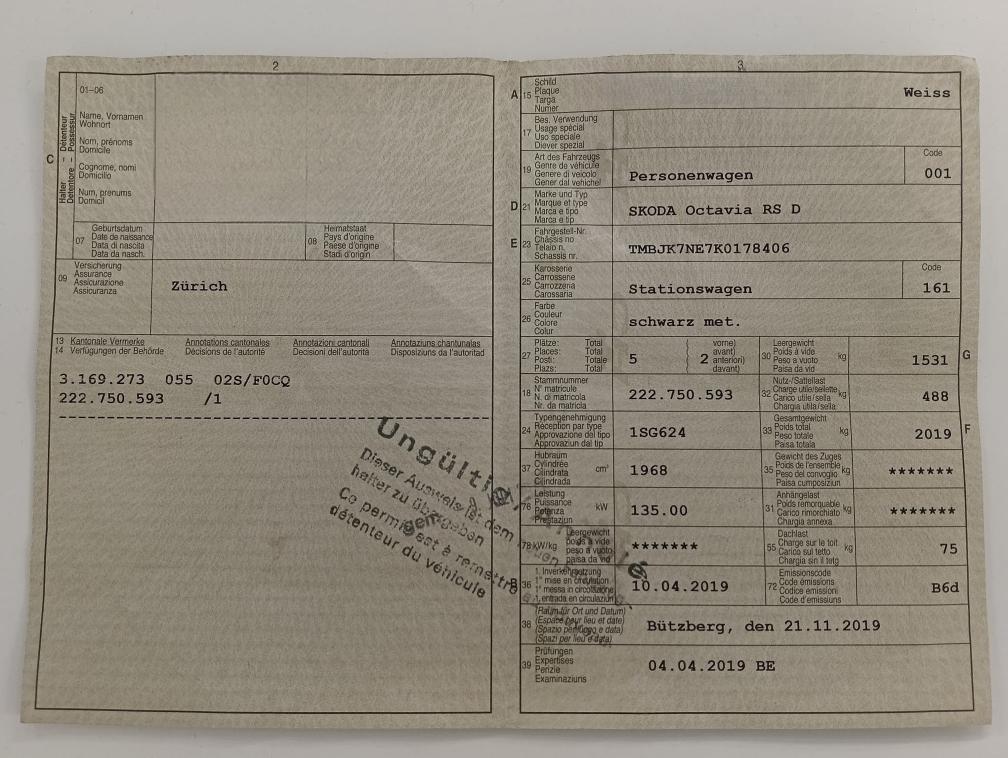 2
01–06
Halter – Détenteur
Detentore – Possessur
C
Name, Vornamen
Wohnort
Nom, prénoms
Domicile
Cognome, nomi
Domicilio
Num, prenums
Domicil
07
Geburtsdatum
Date de naissance
Data di nascita
Data da nasch.
08
Heimatstaat
Pays d'origine
Paese d'origine
Stadi d'origin
09
Versicherung
Assurance
Assicurazione
Assicuranza
Zürich
13 Kantonale Vermerke Annotations cantonales Annotazioni cantonali Annotaziuns chantunalas
14 Verfügungen der Behörde Décisions de l'autorité Decisioni dell'autorità Disposiziuns da l'autoritad
3.169.273 055 02S/F0CQ
222.750.593 /1
Ungültig
Dieser Ausweis ist dem
halter zu übergeben
Ce permis est à remettre
détenteur du véhicule
3
A 15
Schild
Plaque
Targa
Numer
Weiss
17
Bes. Verwendung
Usage spécial
Uso speciale
Diever spezial
19
Art des Fahrzeugs
Genre de véhicule
Genere di veicolo
Gener dal vehichel
Personenwagen
Code
001
D 21
Marke und Typ
Marque et type
Marca e tipo
Marca e tip
SKODA Octavia RS D
E 23
Fahrgestell-Nr.
Châssis no
Telaio n.
Schassis nr.
TMBJK7NE7K0178406
25
Karosserie
Carrosserie
Carrozzeria
Carossaria
Stationswagen
Code
161
26
Farbe
Couleur
Colore
Colur
schwarz met.
27
Plätze: Total
Places: Total
Posti: Totale
Plazs: Total
5
( vorne)
( avant)
2 anteriori)
( davant)
30
Leergewicht
Poids à vide
Peso a vuoto
Paisa da vid
kg
1531
G
18
Stammnummer
N° matricule
N. di matricola
Nr. da matricla
222.750.593
32
Nutz-/Sattellast
Charge utile/sellette
Carico utile/sella
Chargia utila/sella
kg
488
24
Typengenehmigung
Réception par type
Approvazione del tipo
Approvaziun dal tip
1SG624
33
Gesamtgewicht
Poids total
Peso totale
Paisa totala
kg
2019
F
37
Hubraum
Cylindrée
Cilindrata
Cilindrada
cm³
1968
35
Gewicht des Zuges
Poids de l'ensemble
Peso del convoglio
Paisa cumposiziun
kg
*******
76
Leistung
Puissance
Potenza
Prestaziun
kW
135.00
31
Anhängelast
Poids remorquable
Carico rimorchiato
Chargia annexa
kg
*******
78 kW/kg
Leergewicht
poids à vide
peso a vuoto
paisa da vid
*******
55
Dachlast
Charge sur le toit
Carico sul tetto
Chargia sin il tetg
kg
75
B 36
1. Inverkehrsetzung
1re mise en circulation
1a messa in circolazione
1. entrada en circulaziun
10.04.2019
72
Emissionscode
Code émissions
Codice emissioni
Code d'emissiuns
B6d
38
(Raum für Ort und Datum)
(Espace pour lieu et date)
(Spazio per luogo e data)
(Spazi per lieu e data)
Bützberg, den 21.11.2019
39
Prüfungen
Expertises
Perizie
Examinaziuns
04.04.2019 BE